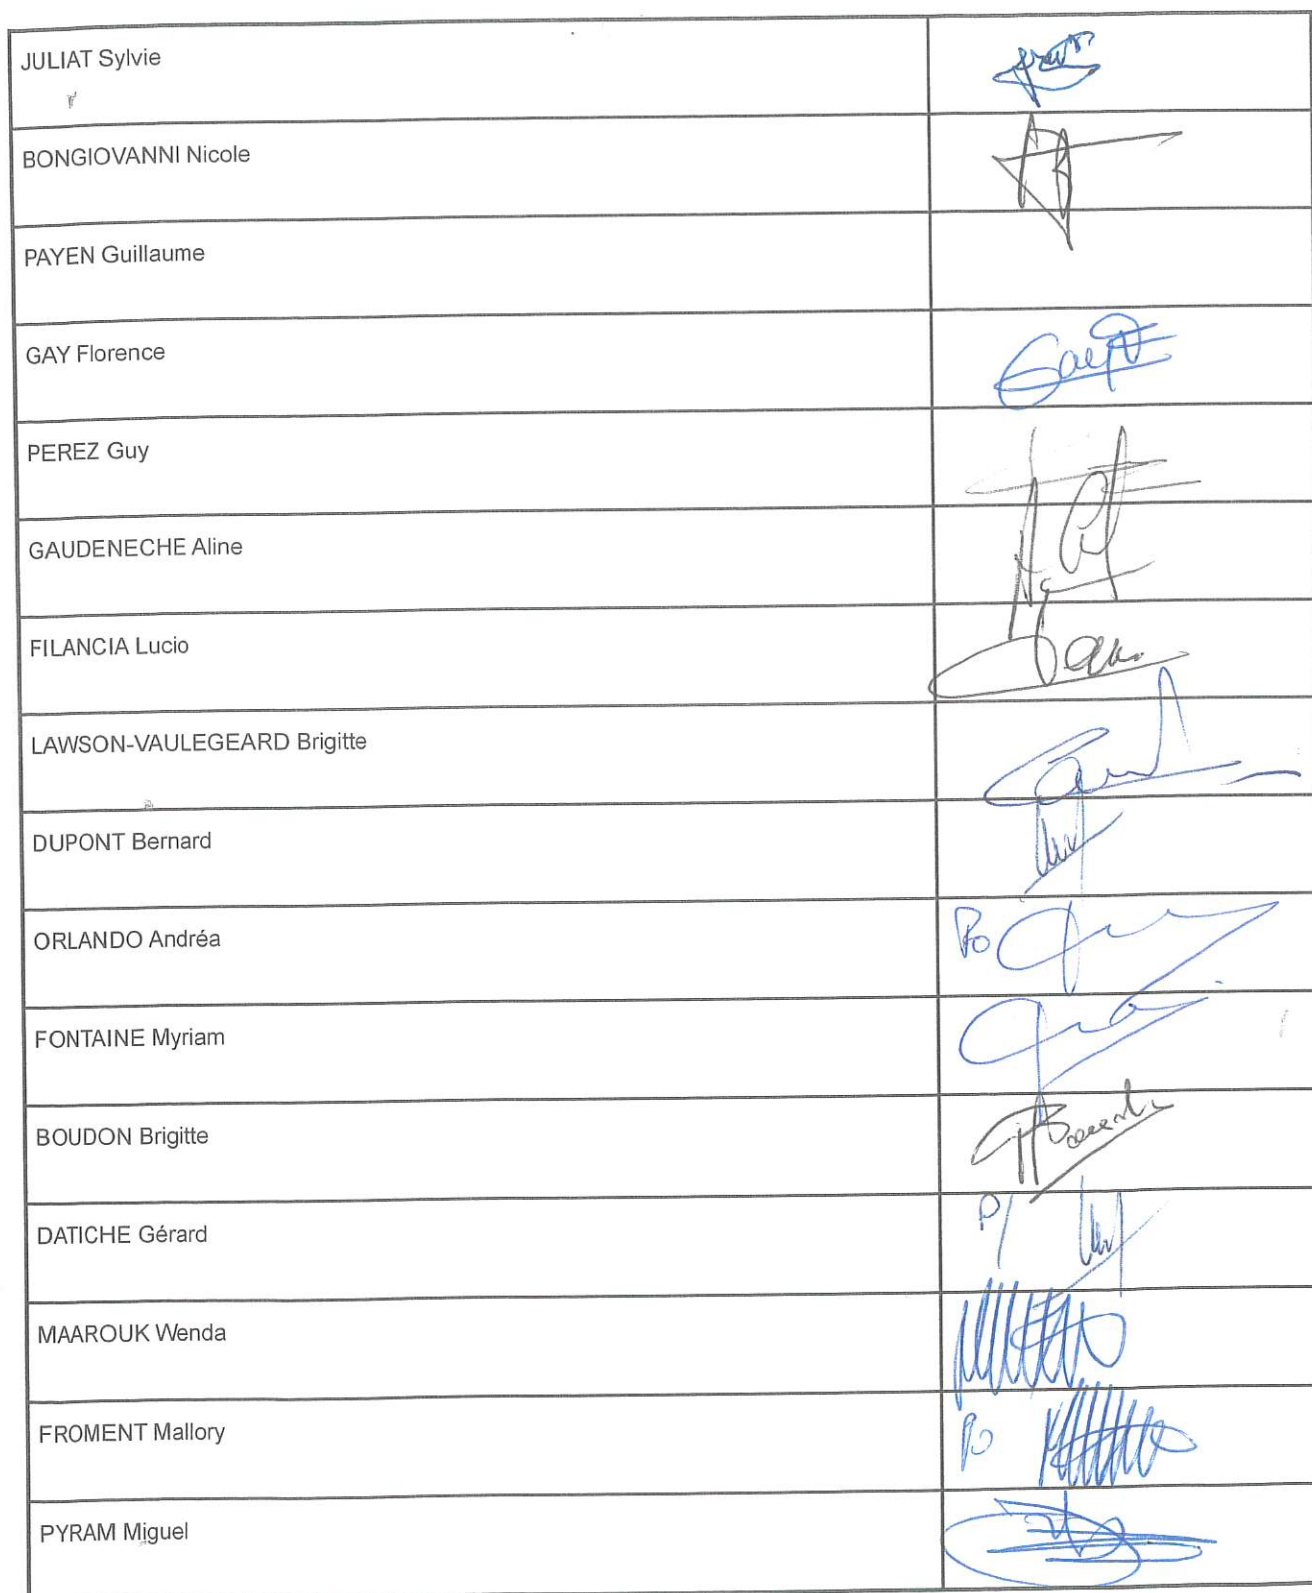 JULIAT Sylvie
BONGIOVANNI Nicole
PAYEN Guillaume
GAY Florence
PEREZ Guy
GAUDENECHE Aline
FILANCIA Lucio
LAWSON-VAULEGEARD Brigitte
DUPONT Bernard
ORLANDO Andréa
Po
FONTAINE Myriam
BOUDON Brigitte
DATICHE Gérard
P/
MAAROUK Wenda
FROMENT Mallory
Po
PYRAM Miguel